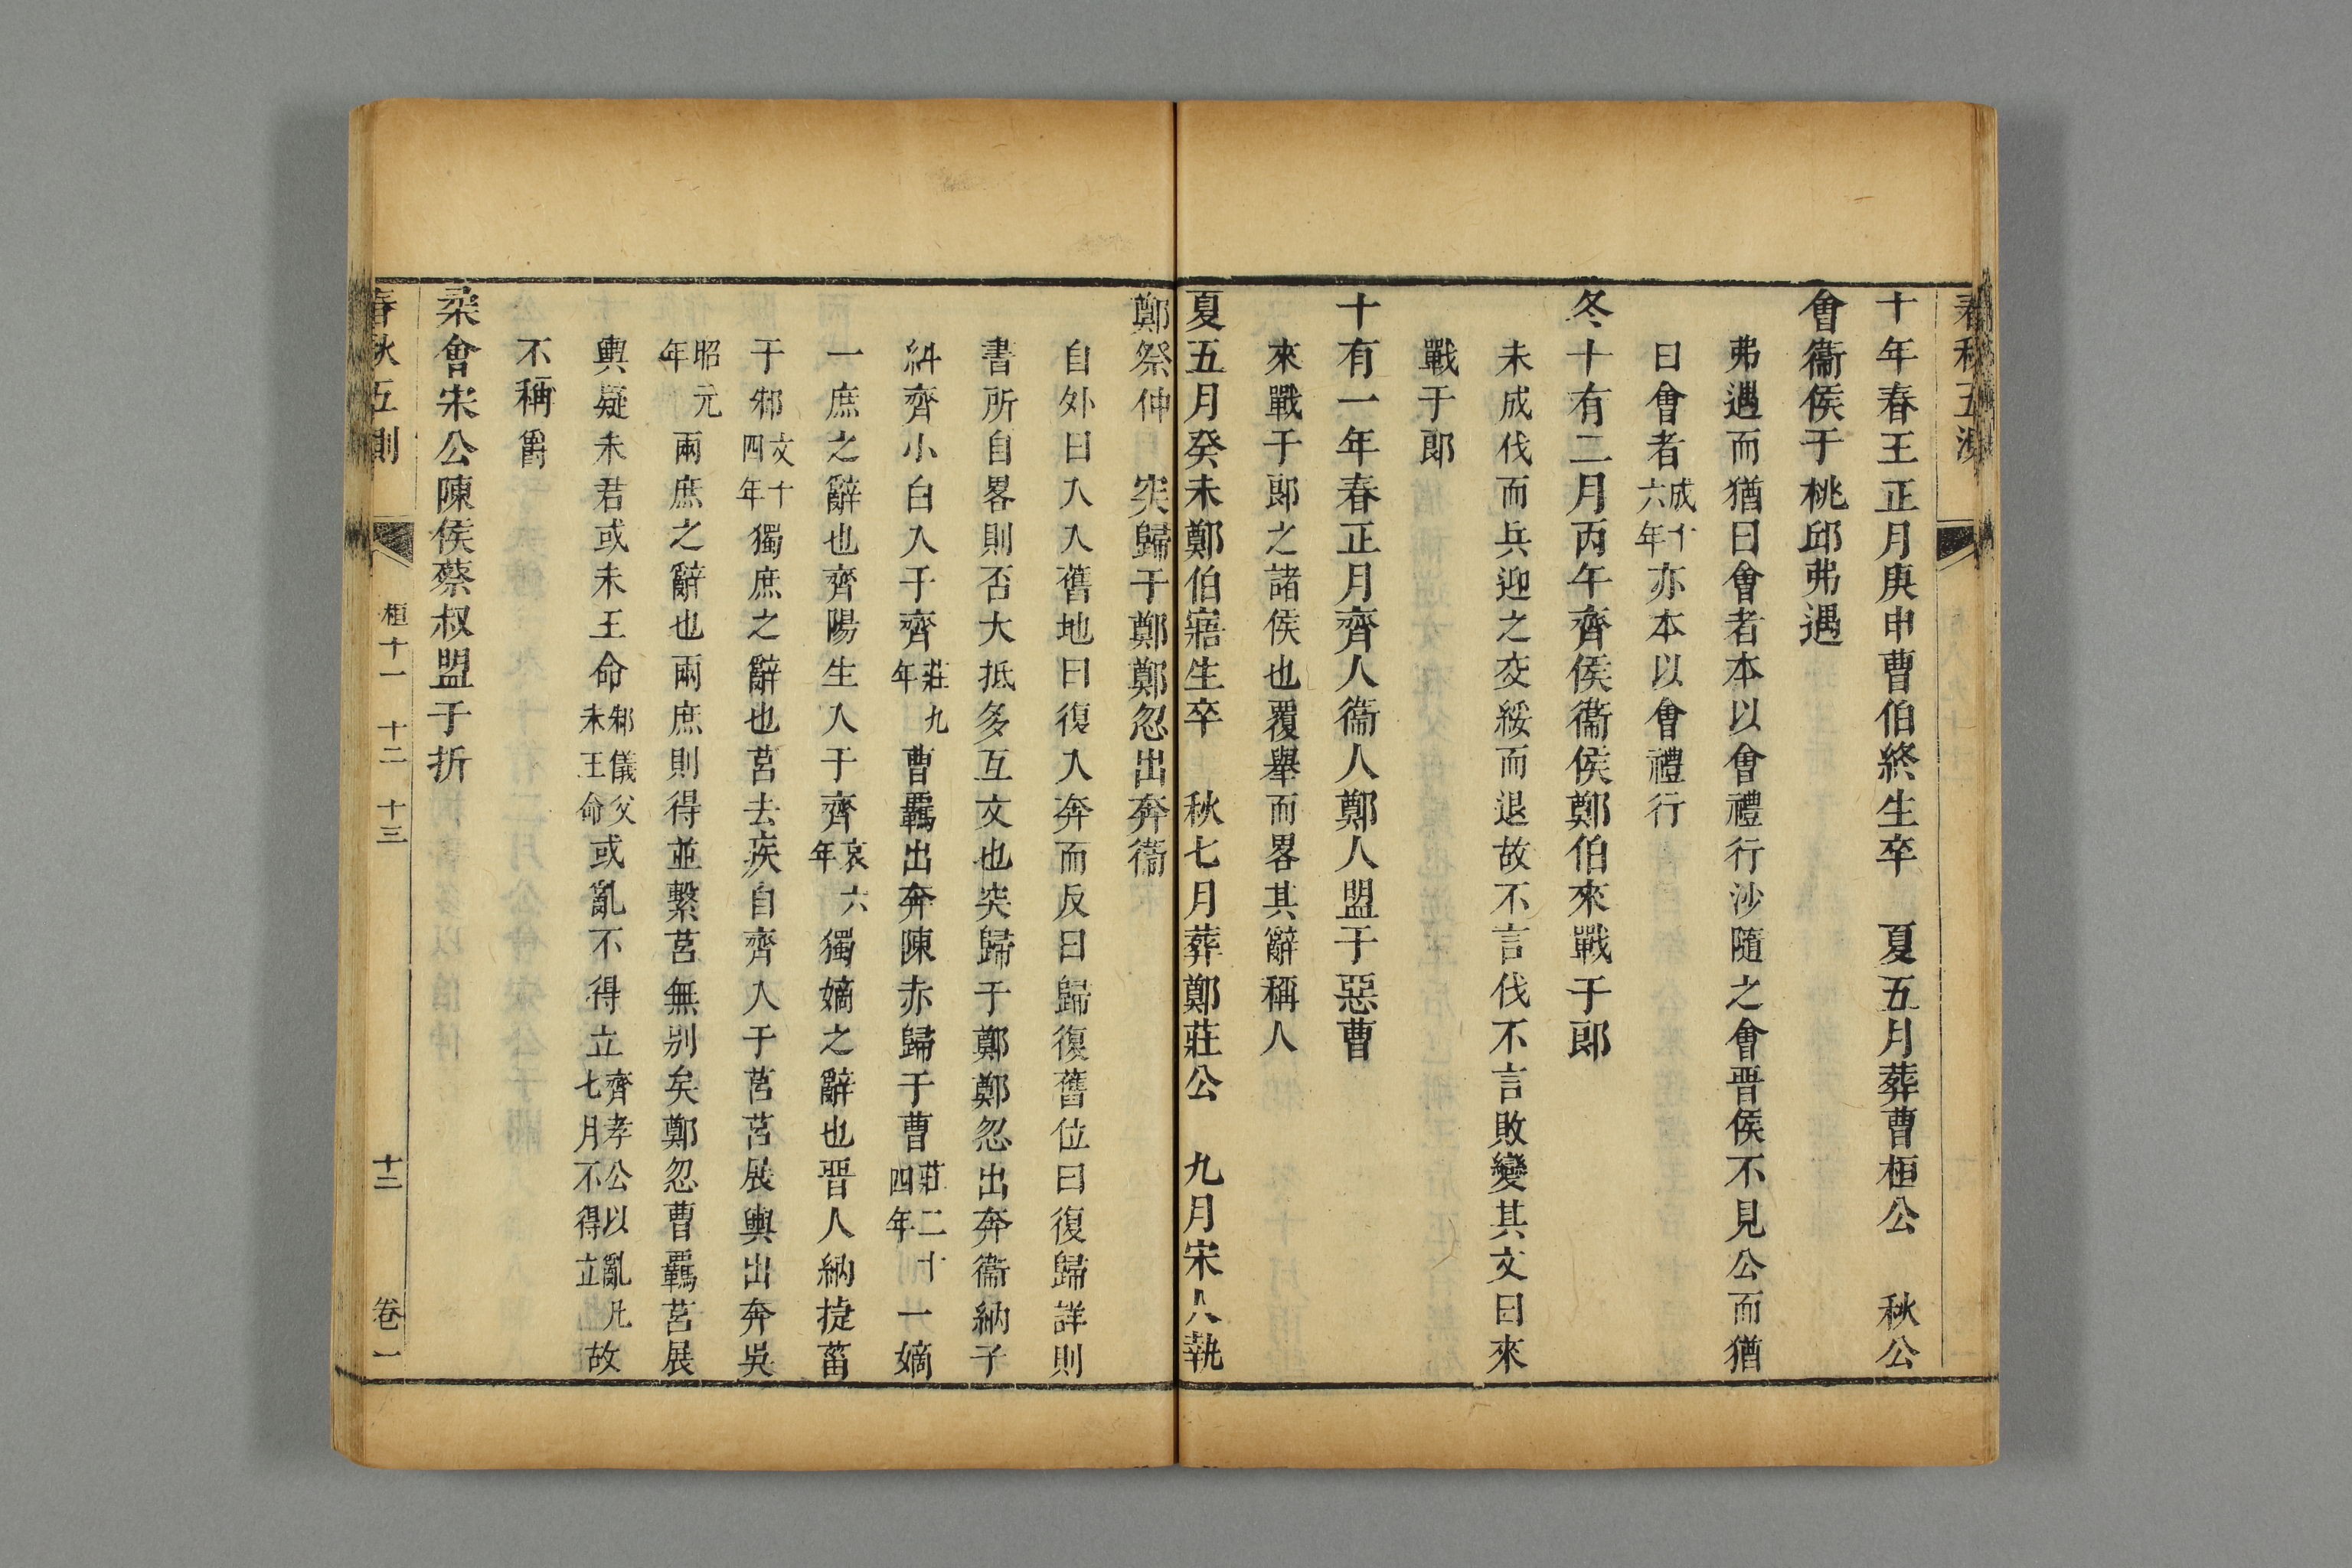 十年春王正月庚申曹伯終生卒　夏五月葬曹桓公　秋公
會衞侯于桃邱弗遇
弗遇而猶曰會者本以會禮行沙隨之會晋侯不見公而猶
曰會者成十六年亦本以會禮行
冬十有二月丙午齊侯衞侯鄭伯來戰于郎
未成伐而兵迎之交綏而退故不言伐不言敗變其文曰來
戰于郎
十有一年春正月齊人衞人鄭人盟于惡曹
來戰于郎之諸侯也覆舉而畧其辭稱人
夏五月癸未鄭伯寤生卒　秋七月葬鄭莊公　九月宋人執
鄭祭仲　突歸于鄭鄭忽出奔衞
自外曰入入舊地曰復入奔而反曰歸復舊位曰復歸詳則
書所自畧則否大抵多互文也突歸于鄭鄭忽出奔衞納子
糾齊小白入于齊莊九年曹羈出奔陳赤歸于曹莊二十四年一嫡
一庶之辭也齊陽生入于齊哀六年獨嫡之辭也晋人納捷菑
于邾文十四年獨庶之辭也莒去疾自齊入于莒莒展輿出奔吳
昭元年兩庶之辭也兩庶則得並繫莒無别矣鄭忽曹羈莒展
輿疑未君或未王命邾儀父未王命或亂不得立齊孝公以亂凡七月不得立故
不稱爵
柔會宋公陳侯蔡叔盟于折
春秋五則
桓十一　十二　十三
十二
卷一